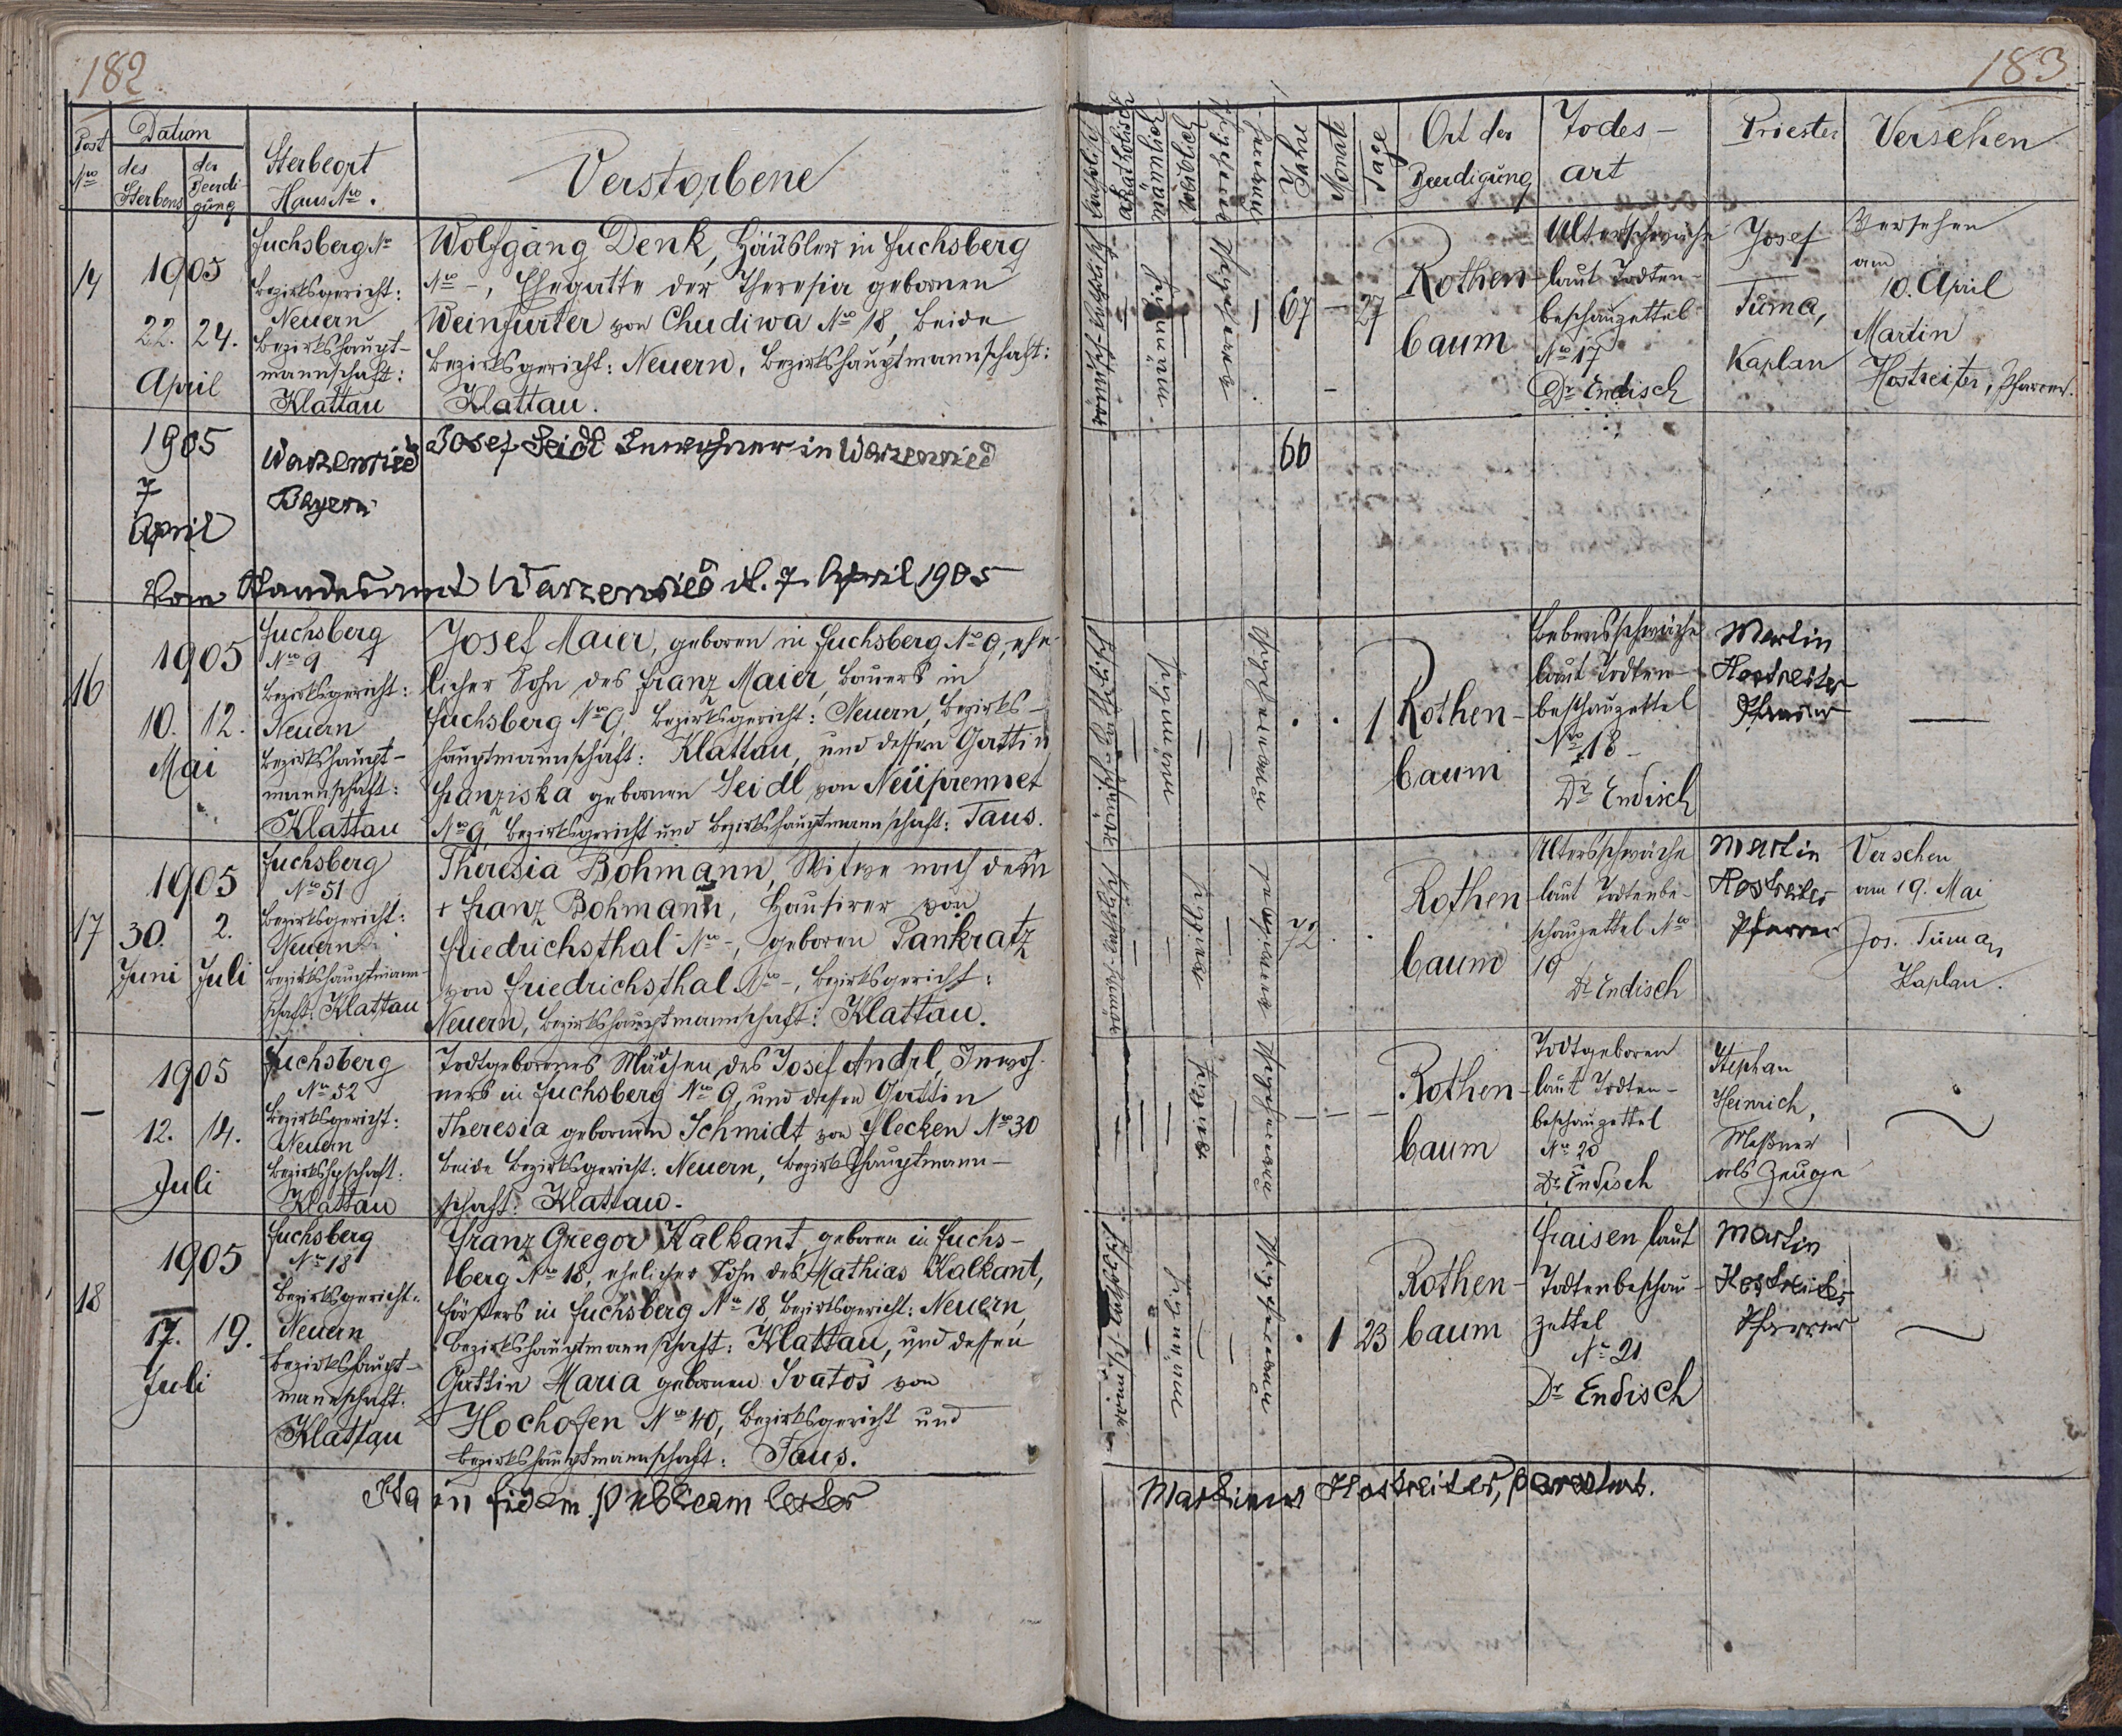 182
183
Post
No
Datum
des
Sterbens
der
Beerdi
gung
Sterbeort
Haus No.
Verstorbene
katholisch
akatholisch
männlich
weiblich
Jahre
Monate
Tage
Ort der
Beerdigung
Todes-
art
Priester
Versehen
14
1905
22. 24.
April
Fuchsberg No
Bezirksgericht:
Neuern
Bezirkshaupt-
mannschaft:
Klattau
Wolfgang Denk, Häusler in Fuchsberg
No -, Ehegatte der Theresia geborenen
Weinfurter von Chudiwa No 18, beide
Bezirksgericht: Neuern, Bezirkshauptmannschaft:
Klattau.
römisch-katholisch
männlich
verheiratet
67 - 27
Rothen-
baum
Altersschwäche
laut Todten-
beschauzettel
No 17
Dr Endisch
Josef
Tuma,
Kaplan
Versehen
am
10. April
Martin
Hostreiter, Pfarrer.
1905
7
April
Warzenried
Bayern
Josef Seidl Inwohner in Warzenried
66
Vom Standesamt Warzenried d. 7. April 1905
16
1905
10. 12.
Mai
Fuchsberg
No 9
Bezirksgericht:
Neuern
Bezirkshaupt-
mannschaft:
Klattau
Josef Maier, geboren in Fuchsberg No 9, ehe-
licher Sohn des Franz Maier, Bauers in
Fuchsberg No 9, Bezirksgericht: Neuern, Bezirks-
hauptmannschaft: Klattau, und dessen Gattin
Franziska geborenen Seidl von Neuprennet
No 9, Bezirksgericht und Bezirkshauptmannschaft: Taus.
römisch-katholisch
männlich
. . 1
Rothen-
baum
Lebensschwäche
laut Todten-
beschauzettel
No 18
Dr Endisch
Martin
Hostreiter
Pfarrer
—
17
1905
30. 2.
Juni Juli
Fuchsberg
No 51
Bezirksgericht:
Neuern
Bezirkshauptmann-
schaft: Klattau
Theresia Bohmann, Witwe nach dem
+ Franz Bohmann, Hausirer von
Friedrichsthal No -, geboren Pankratz
von Friedrichsthal No -, Bezirksgericht:
Neuern, Bezirkshauptmannschaft: Klattau.
römisch-katholisch
weiblich
verwitwet
72 . .
Rothen
baum
Altersschwäche
laut Todtenbe-
schauzettel No
19
Dr Endisch
Martin
Hostreiter
Pfarrer
Versehen
am 19. Mai
Jos. Tuma,
Kaplan.
—
1905
12. 14.
Juli
Fuchsberg
No 52
Bezirksgericht:
Neuern
Bezirkshptschaft:
Klattau
Todtgeborenes Mädchen des Josef Andrl, Inwoh-
ners in Fuchsberg No 9, und dessen Gattin
Theresia geborenen Schmidt von Flecken No 30
beide Bezirksgericht: Neuern, Bezirkshauptmann-
schaft: Klattau.
weiblich
— — —
Rothen-
baum
Todtgeboren
laut Todten-
beschauzettel
No 20
Dr Endisch
Stephan
Heinrich,
Meßner
als Zeuge
18
1905
17. 19.
Juli
Fuchsberg
No 18
Bezirksgericht:
Neuern
Bezirkshaupt-
mannschaft:
Klattau
Franz Gregor Kalkant, geboren in Fuchs-
berg No 18, ehelicher Sohn des Mathias Kalkant,
Försters in Fuchsberg No 18, Bezirksgericht: Neuern,
Bezirkshauptmannschaft: Klattau, und dessen
Gattin Maria geborenen Svatos von
Hochofen No 40, Bezirksgericht und
Bezirkshauptmannschaft: Taus.
römisch-katholisch
männlich
. 1 23
Rothen-
baum
Fraisen laut
Todtenbeschau-
zettel
No 21
Dr Endisch
Martin
Hostreiter
Pfarrer
Ita in fidem publicam testor
Martinus Hostreiter, parochus.